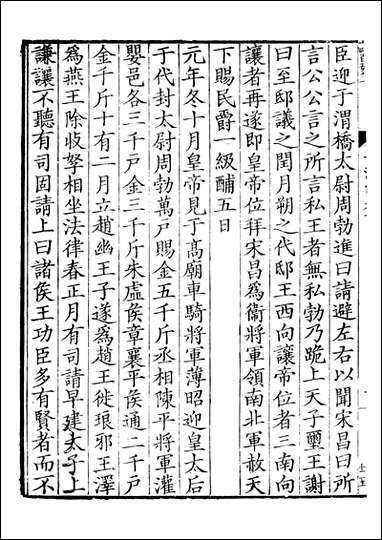 臣迎于渭橋太尉周勃進曰請避左右以聞宋昌曰所
言公公言之所言私王者無私勃乃跪上天子璽王謝
曰至邸議之閏月朔之代邸王西向讓帝位者三南向
讓者再遂即皇帝位拜宋昌爲衞將軍領南北軍赦天
下賜民爵一級酺五日
元年冬十月皇帝見于髙廟車騎將軍薄昭迎皇太后
于代封太尉周勃萬戸賜金五千斤丞相陳平將軍灌
嬰邑各三千戸金三千斤朱虚侯章襄平侯通二千戸
金千斤十有二月立趙幽王子遂爲趙王徙琅邪王澤
爲燕王除收孥相坐法律春正月有司請早建太子上
謙讓不聽有司固請上曰諸侯王功臣多有賢者而不